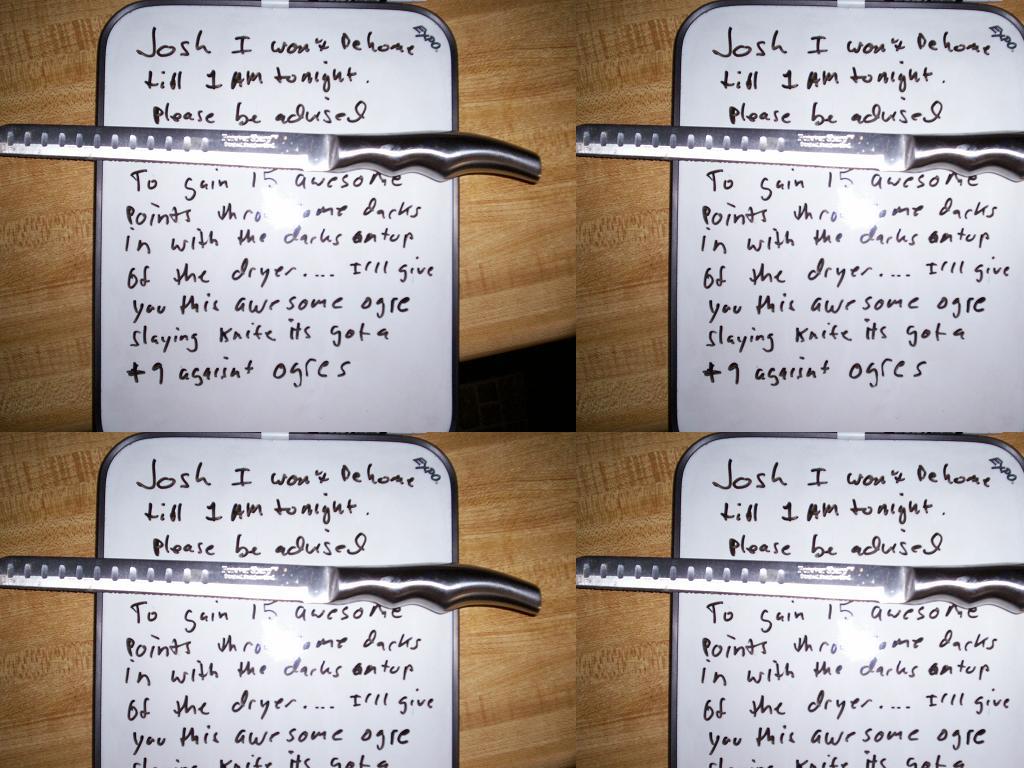 Josh I won't be home
Expo
till 1 AM tonight.
please be advised
To gain 15 awesome
points darks
in with the darks ontop
of the dryer.... I'll give
you this awesome ogre
slaying knife its got a
+9 agaisnt ogres
Josh I won't be home
Expo
till 1 AM tonight.
please be advised
To gain 15 awesome
points darks
in with the darks ontop
of the dryer.... I'll give
you this awesome ogre
slaying knife its got a
+9 agaisnt ogres
Josh I won't be home
Expo
till 1 AM tonight.
please be advised
To gain 15 awesome
points darks
in with the darks ontop
of the dryer.... I'll give
you this awesome ogre
slaying knife its got a
Josh I won't be home
Expo
till 1 AM tonight.
please be advised
To gain 15 awesome
points darks
in with the darks ontop
of the dryer.... I'll give
you this awesome ogre
slaying knife its got a